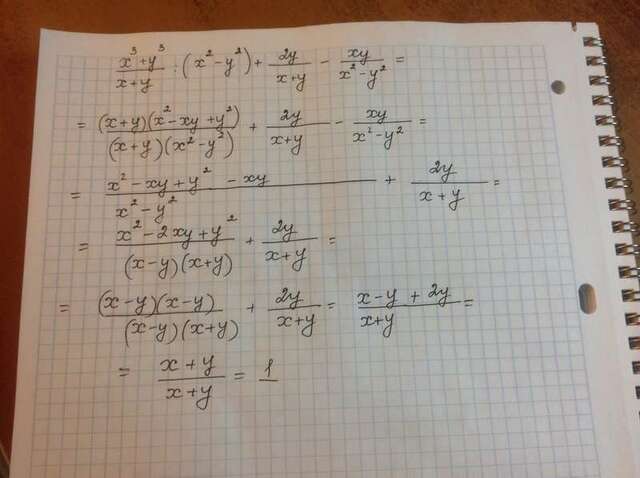 (x³+y³)/(x+y) : (x²-y²) + 2y/(x+y) - xy/(x²-y²) =
= (x+y)(x²-xy+y²)/((x+y)(x²-y²)) + 2y/(x+y) - xy/(x²-y²) =
= (x²-xy+y²-xy)/(x²-y²) + 2y/(x+y) =
= (x²-2xy+y²)/((x-y)(x+y)) + 2y/(x+y) =
= (x-y)(x-y)/((x-y)(x+y)) + 2y/(x+y) = (x-y+2y)/(x+y) =
= (x+y)/(x+y) = 1